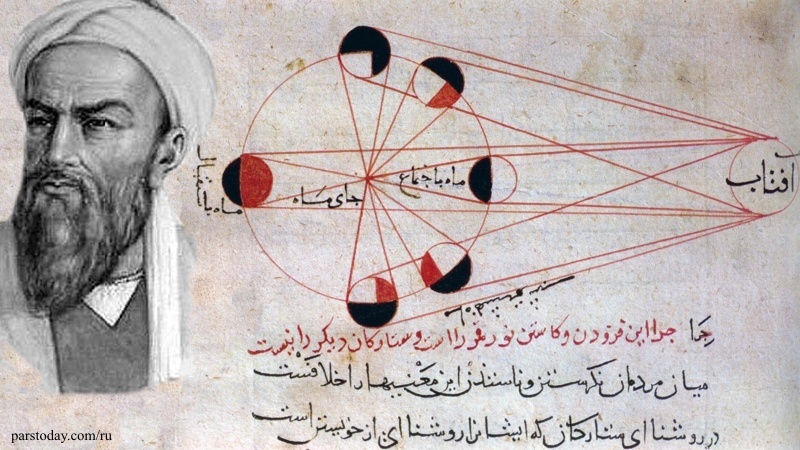 آفتاب
ماه باجتماع
جای ماه
ماه باستقبال
چرا این فزودن و کاستن نور قمر را است و ستارگان دیگر را نیست
میان مردمان نگرستن و ناستدن این معنیها را خلافست
در روشنا ای ستارگان که ایشانرا روشنا ای از خویشتن است
parstoday.com/ru